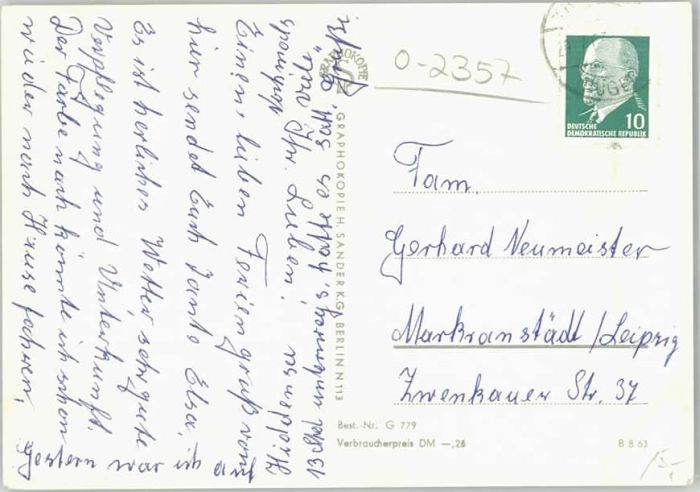 Ihr Lieben!
Einen lieben Feriengruß von
hier sendet Euch Tante Elsa.
Es ist herliches Wetter, sehr gute
Verpflegung und Unterkunft.
Der Farbe nach könnte ich schon
wieder nach Hause fahren,
Gestern war ich auf
Hiddensee
13 Std unterwegs, hatte es satt.
Viele Grüße
O-2357
DEUTSCHE
DEMOKRATISCHE REPUBLIK
10
Fam.
Gerhard Neumeister
Markranstädt/Leipzig
Zwenkauer Str. 37
GRAPHOKOPIE H. SANDER K.G. BERLIN N 113
Best.-Nr. G 779
Verbraucherpreis DM —,25
B 8 63